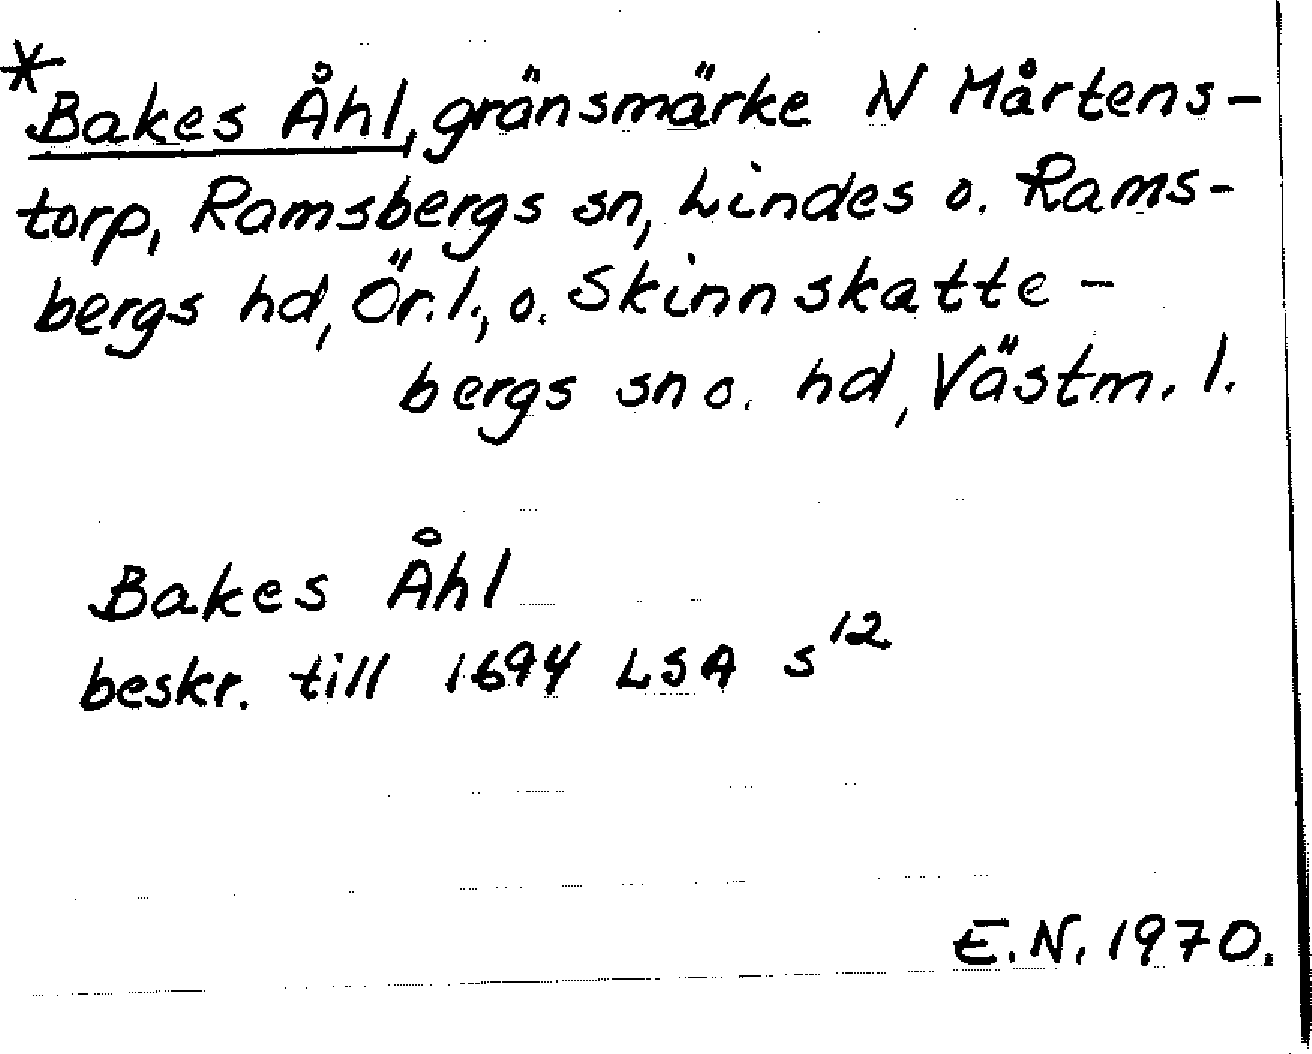 *Bakes Åhl, gränsmärke N Mårtens-
torp, Ramsbergs sn, Lindes o. Rams-
bergs hd, Ör.l., o. Skinnskatte-
bergs sn o. hd, Västm. l.
Bakes Åhl
beskr. till 1694 LSA s¹²
E.N. 1970.